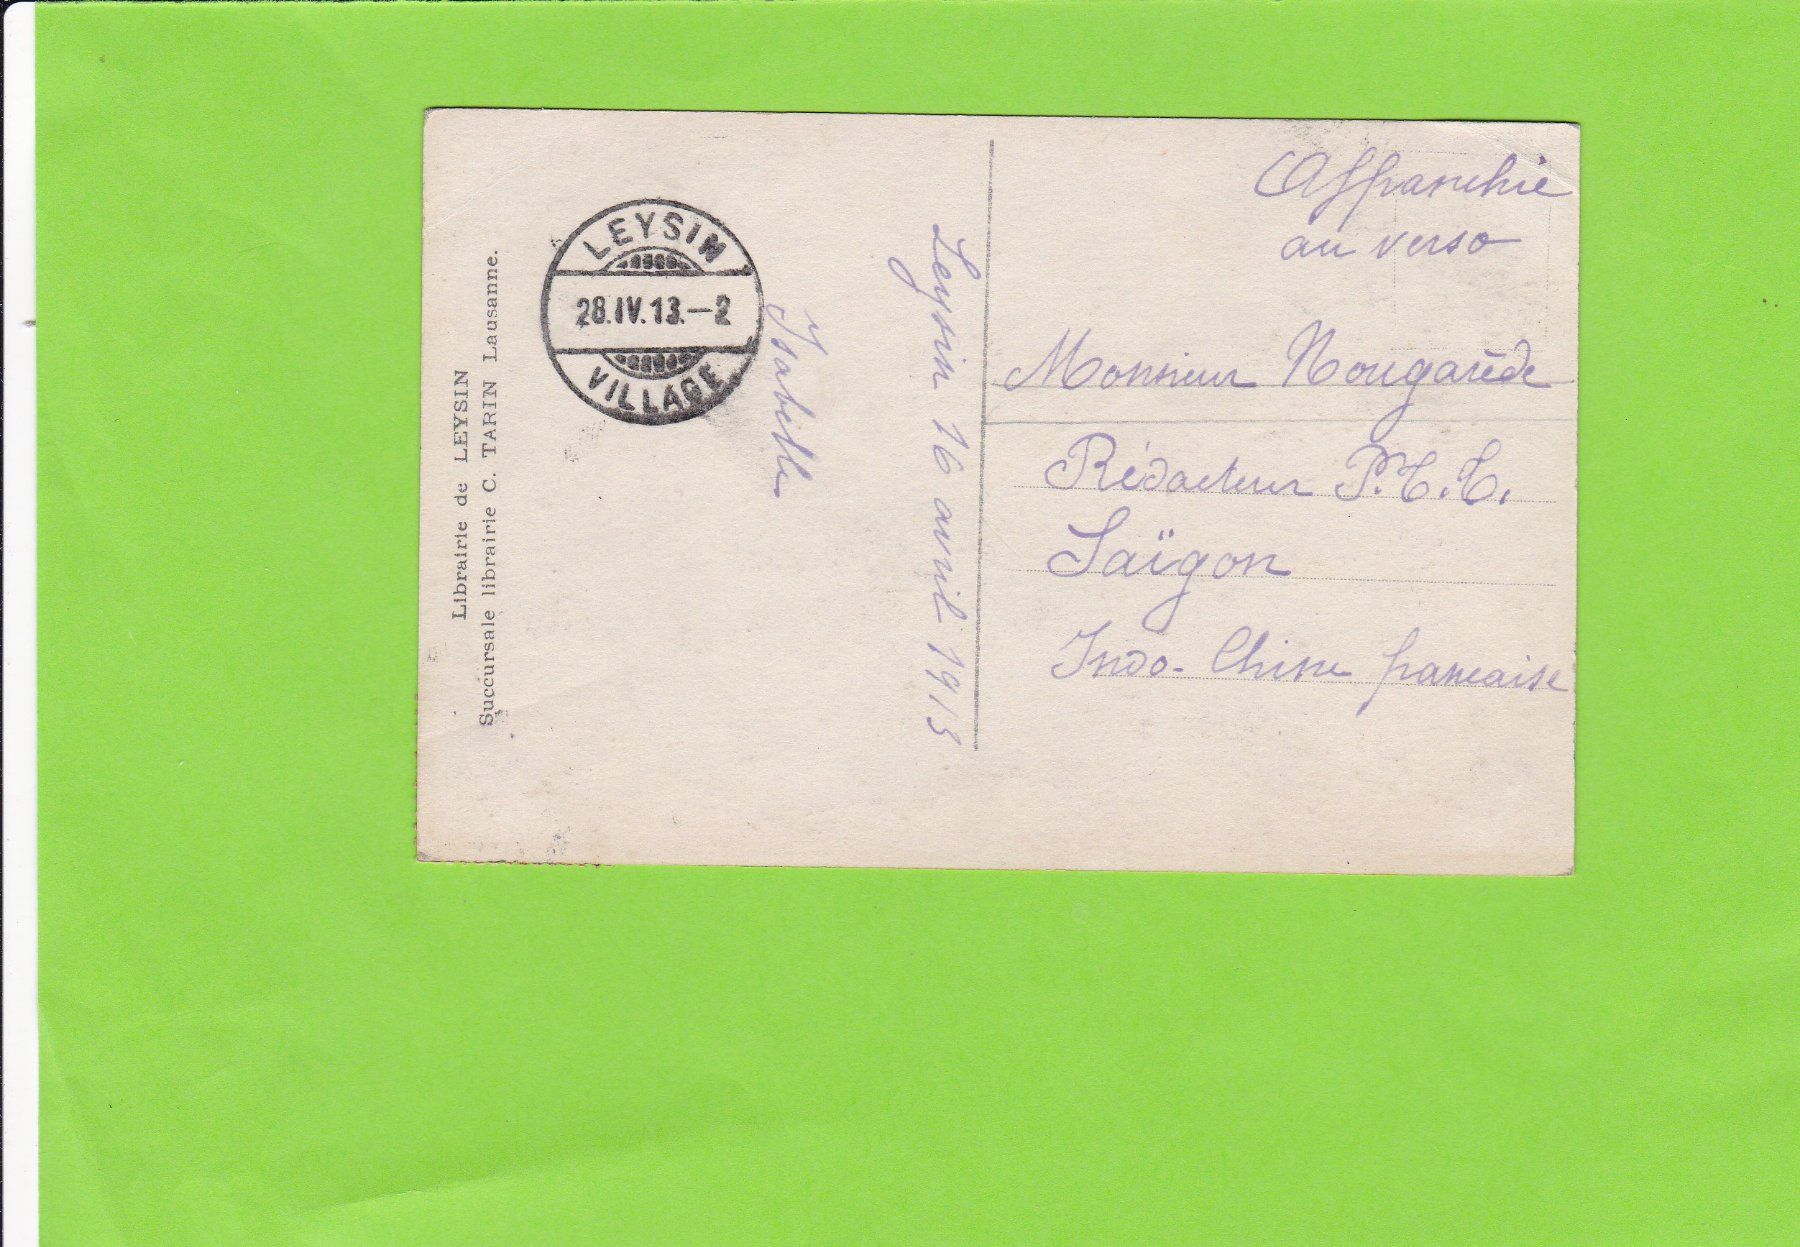 Librairie de LEYSIN
Succursale librairie C. TARIN Lausanne.
LEYSIN
28.IV.13.-2
VILLAGE
Isabelle
Leysin 16 avril 1913
Affranchie
au verso
Monsieur Nougarède
Rédacteur P.T.T.
Saïgon
Indo-Chine francaise